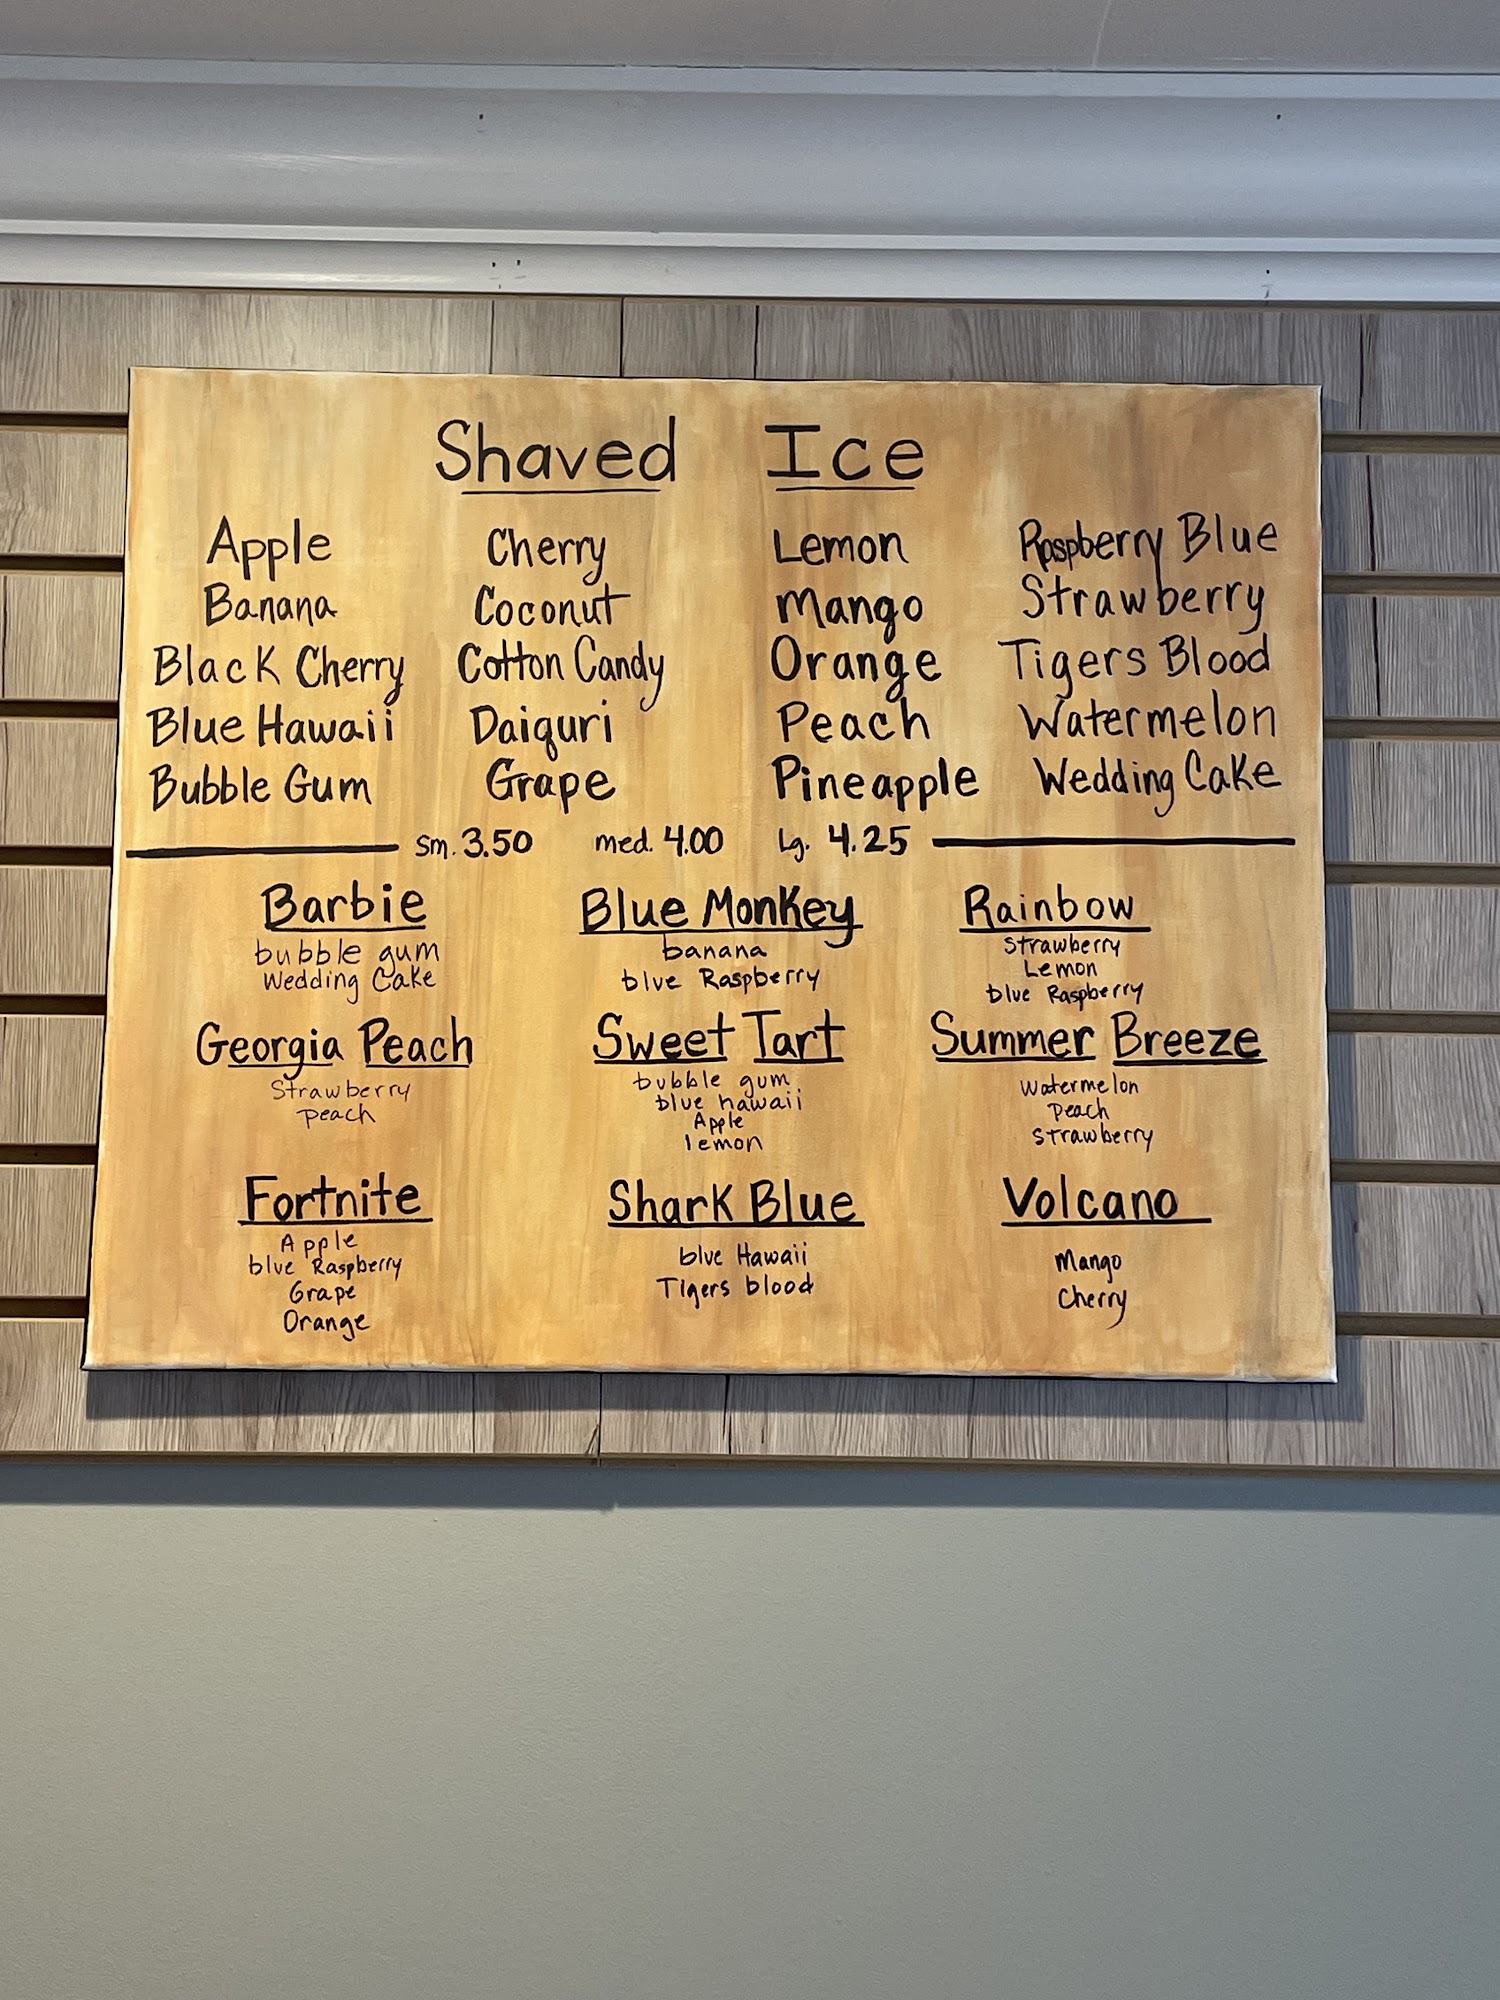 Shaved Ice
Apple Cherry Lemon Raspberry Blue
Banana Coconut Mango Strawberry
Black Cherry Cotton Candy Orange Tigers Blood
Blue Hawaii Daiquri Peach Watermelon
Bubble Gum Grape Pineapple Wedding Cake
sm. 3.50 med. 4.00 Lg. 4.25
Barbie
bubble gum
Wedding Cake
Blue Monkey
banana
blue Raspberry
Rainbow
Strawberry
Lemon
blue Raspberry
Georgia Peach
Strawberry
peach
Sweet Tart
bubble gum
blue hawaii
Apple
lemon
Summer Breeze
Watermelon
Peach
Strawberry
Fortnite
Apple
blue Raspberry
Grape
Orange
Shark Blue
blue Hawaii
Tigers blood
Volcano
Mango
Cherry